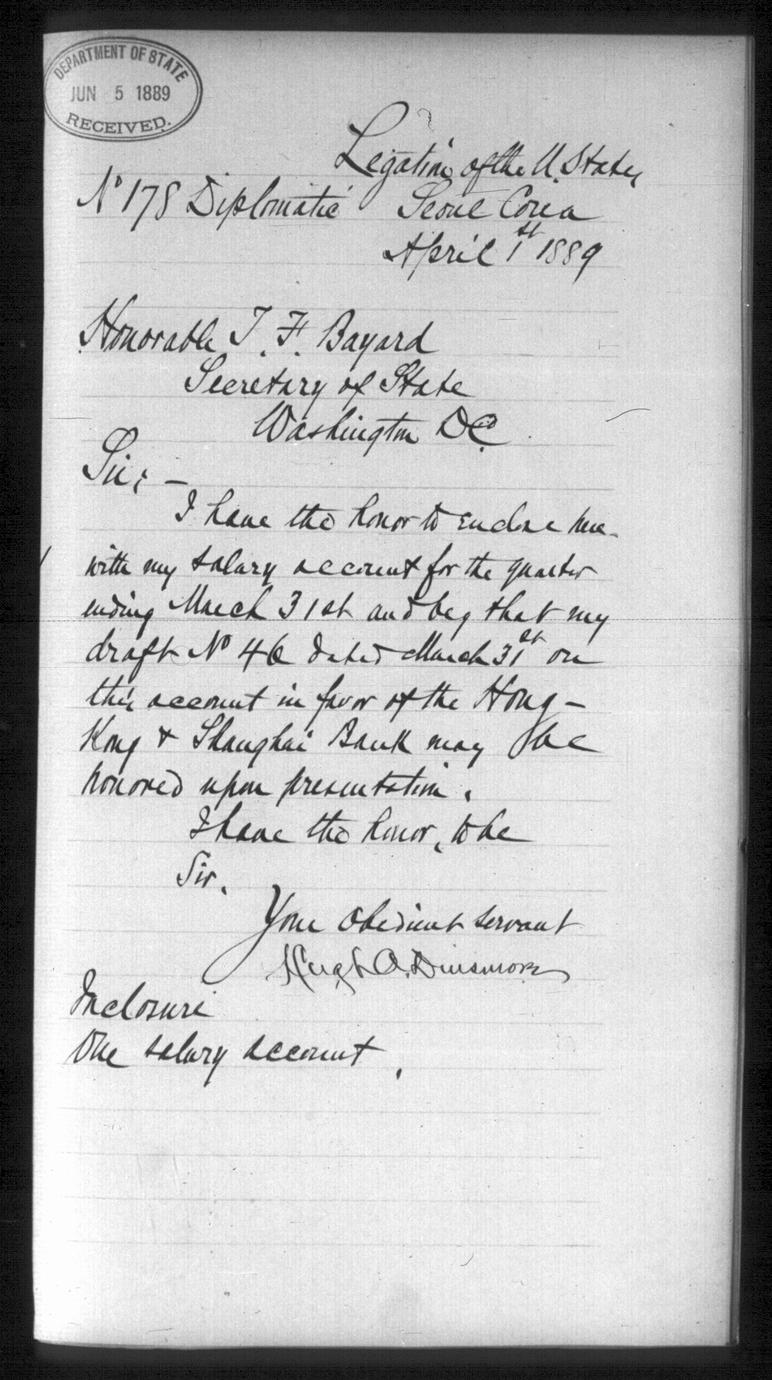 DEPARTMENT OF STATE
JUN 5 1889
RECEIVED.
Legation of the U. States
No 178 Diplomatic Seoul Corea
April 1st 1889
Honorable T. F. Bayard
Secretary of State
Washington DC.
Sir; —
I have the honor to enclose here-
with my salary account for the quarter
ending March 31st and beg that my
draft No 46 dated March 31st on
this account in favor of the Hong-
Kong & Shanghai Bank may be
honored upon presentation.
I have the honor, to be
Sir,
Your obedient servant
Hugh A. Dinsmore
Inclosure
One salary account.